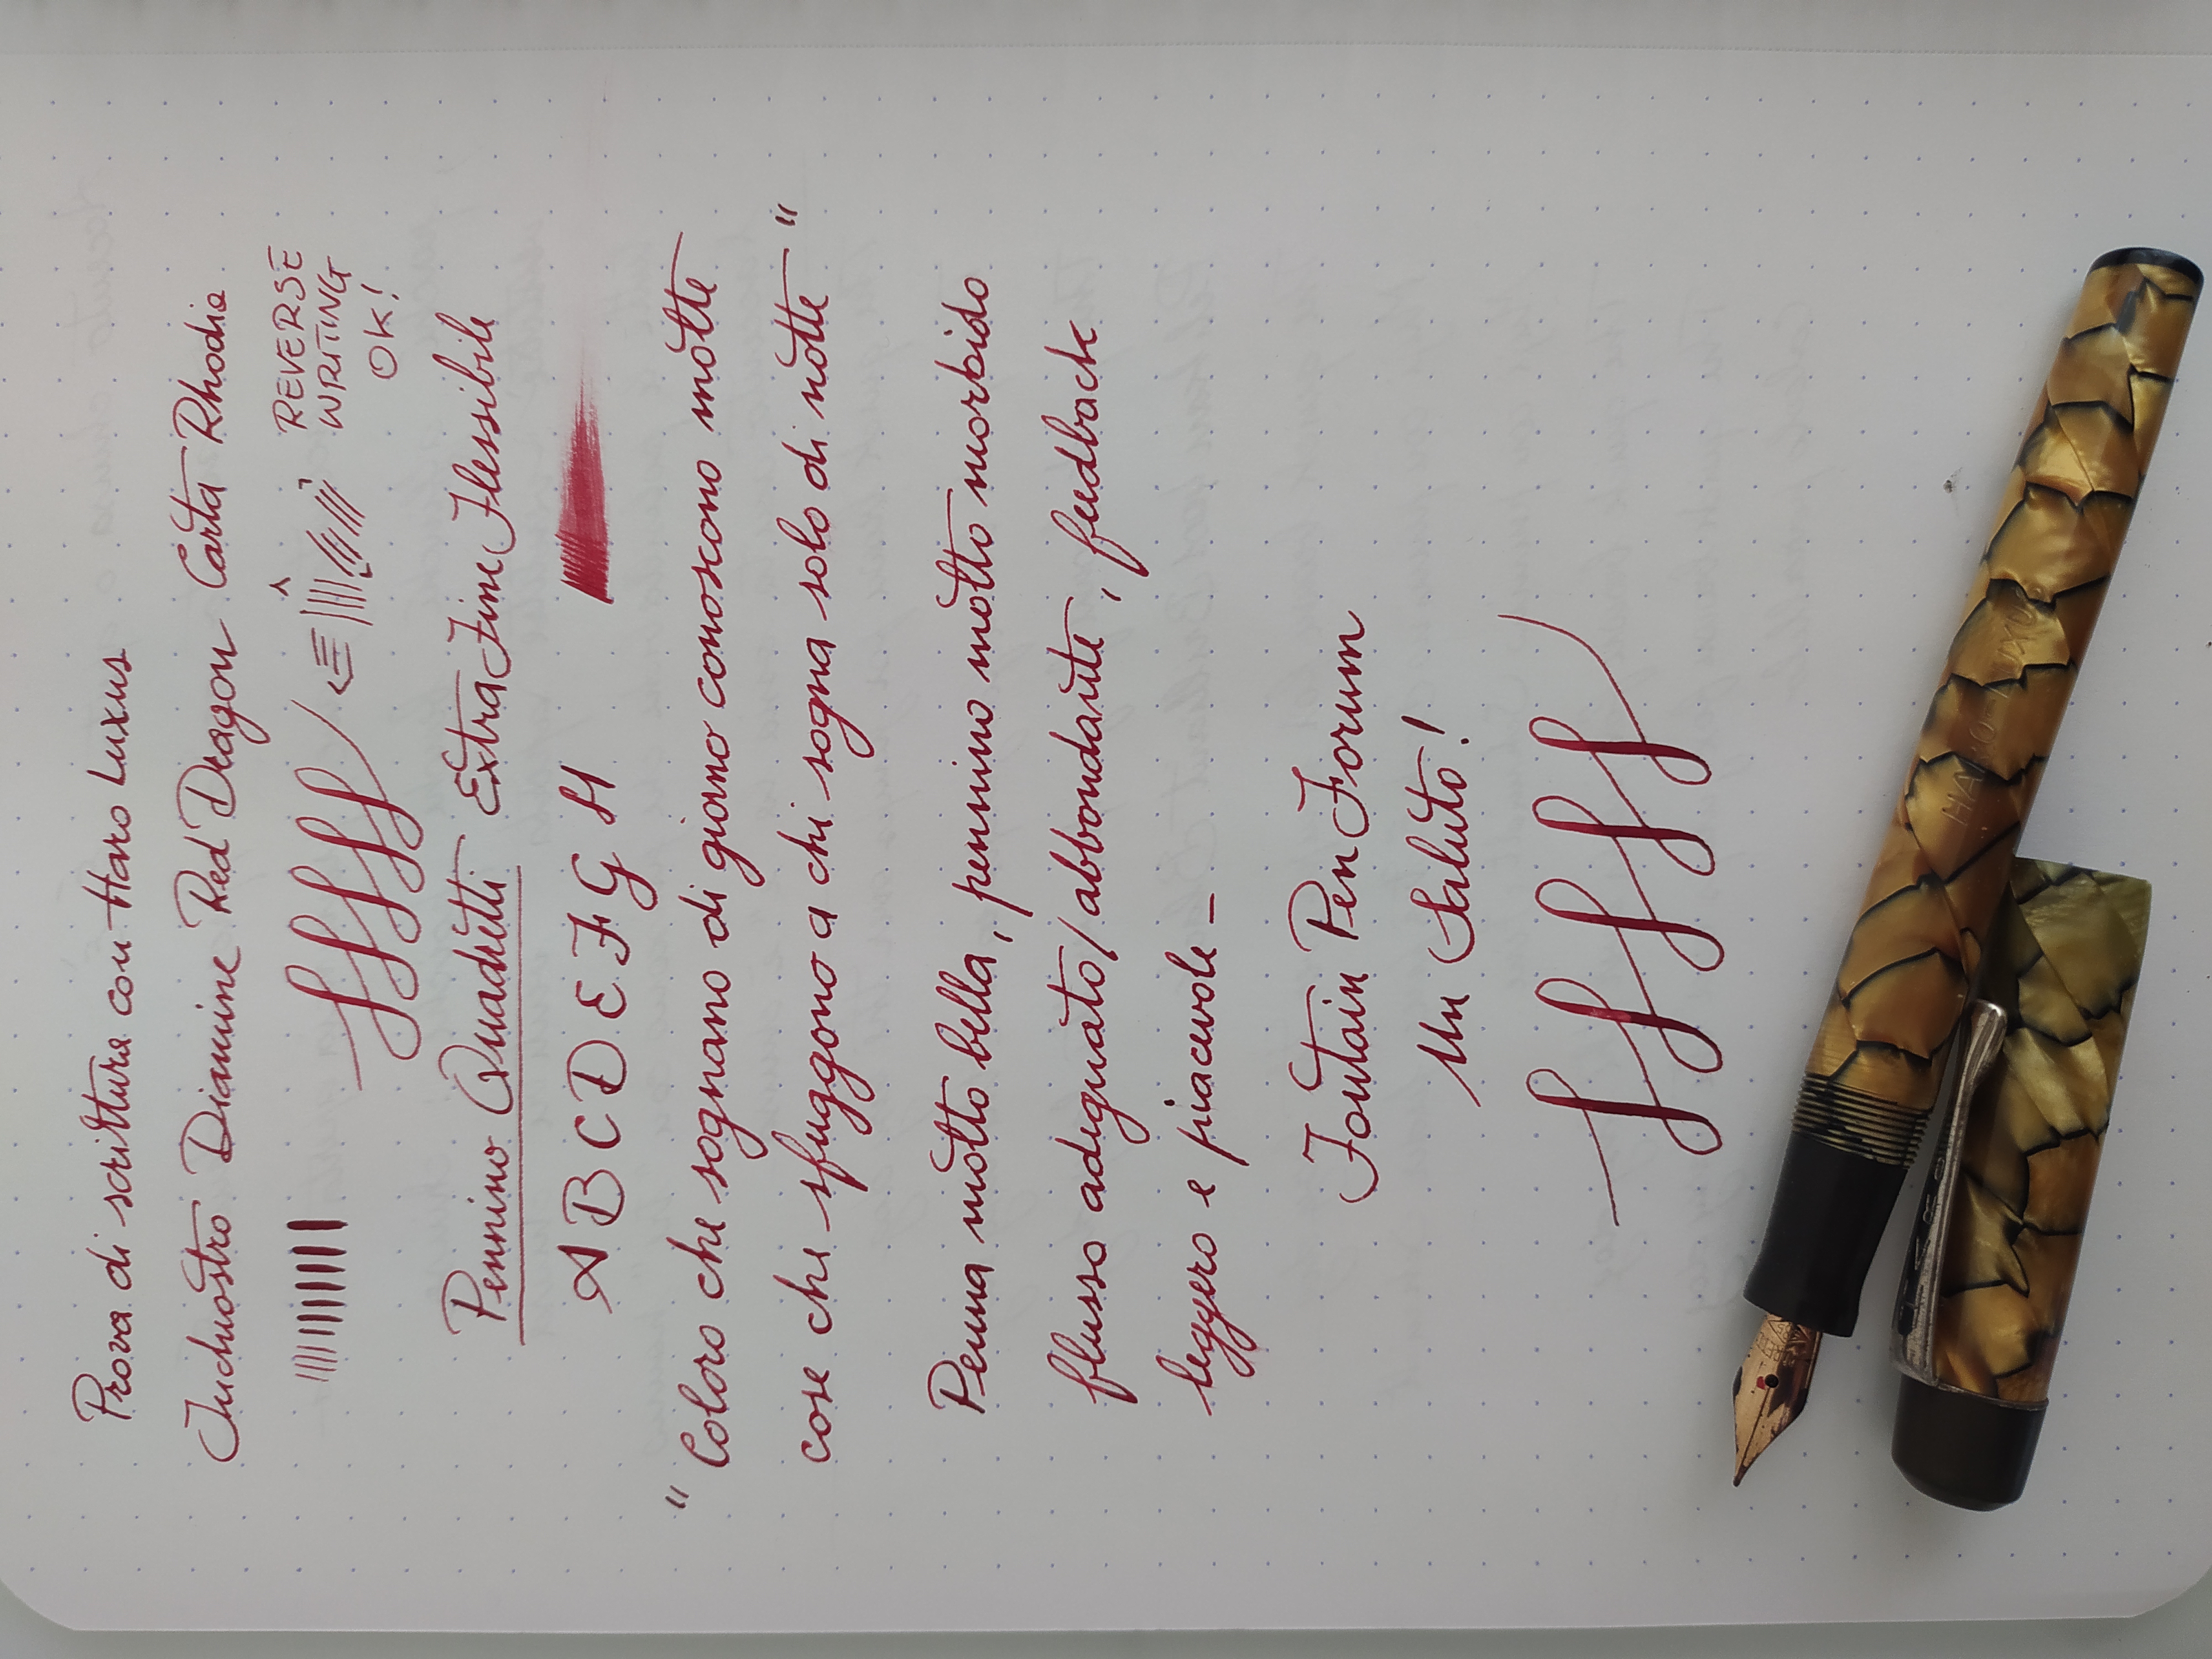 Prova di scrittura con Haro Luxus
Inchiostro Diamine Red Dragon Carta Rhodia
REVERSE
WRITING
OK!
ffff
Pennino Quadretti Extra Fine Flessibile
A B C D E F G H
"Coloro che sognano di giorno conoscono molte
cose che sfuggono a chi sogna solo di notte"
Penna molto bella, pennino molto morbido
flusso adeguato/abbondante, feedback
leggero e piacevole -
Fontain Pen Forum
Un Saluto!
ffff
HARO-LUXUS